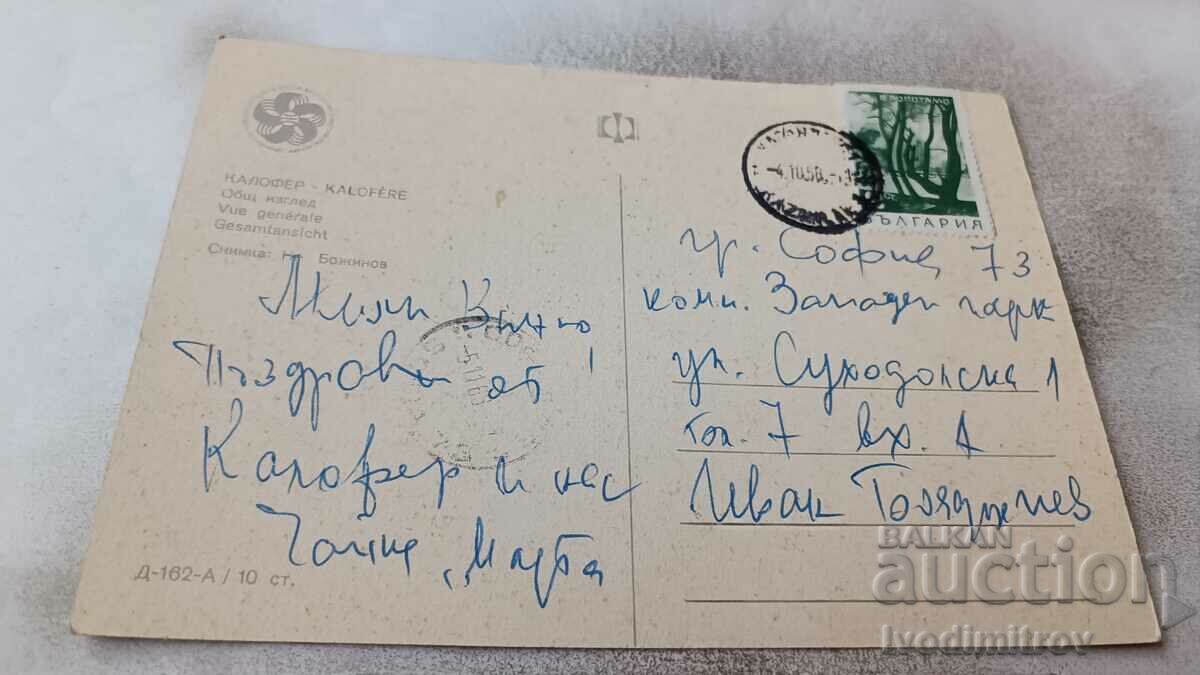 КАЛОФЕР - KALOFÈRE
Общ изглед
Vue générale
Gesamtansicht
Снимка: Н. Божинов
Мили
Поздрави от
Калофер и нас
Д-162-А / 10 ст.
БЪЛГАРИЯ
гр. София 73
комп. Западен парк
ул. Суходолска 1
бл. 7 вх. А
Иван
BALKAN
auction
Ivodimitrov